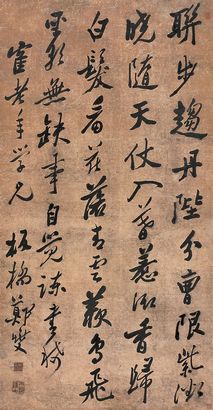 聯步趨丹陛分曹限紫微
曉隨天仗入暮惹御香歸
白髮看花落青雲羨鳥飛
聖朝無缺事自覺諫書稀
老年學兄 板橋鄭燮